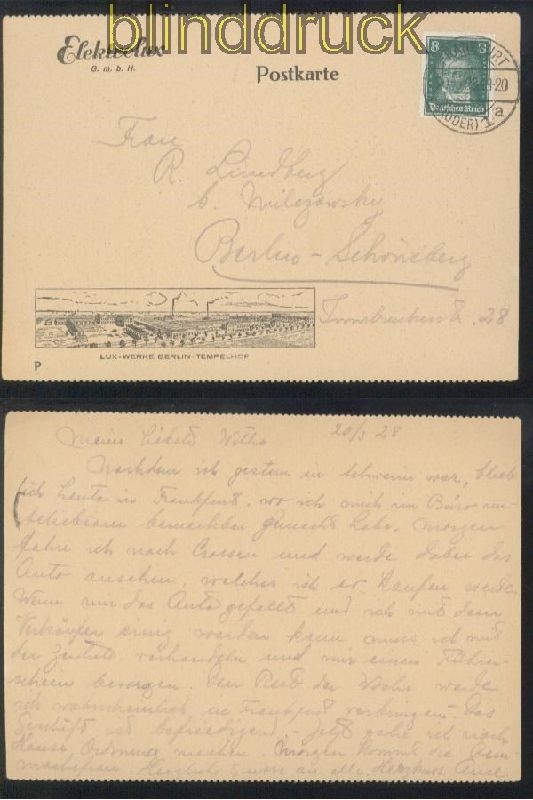 blinddruck
Elektrolux
G. m. b. H.
Postkarte
8 8
Deutsches Reich
(ODER) 1 a
Frau
R. Lindberg
b. Milczewsky
Berlin-Schöneberg
Innsbruckerstr. 28
LUX-WERKE BERLIN-TEMPELHOF
P
Meine Liebste 20/3 28
Nachdem ich gestern in Schwerin war, blieb
ich heute in Frankfurt, wo ich mich im Büro un-
beliebsam bemerkbar gemacht habe. Morgen
fahre ich nach Crossen und werde dabei das
Auto ansehen, welches ich ev. kaufen werde.
Wenn mir das Auto gefällt und ich mit dem
Verkäufer einig werden kann muss ich mit
der verhandeln und mir einen Führer-
schein besorgen. Den Rest der Woche werde
ich wahrscheinlich in Frankfurt verbringen. Das
Geschäft ist befriedigend. Jetzt gehe ich nach
Hause, Ordnung machen. Morgen kommt die
Herzlichst an alle,